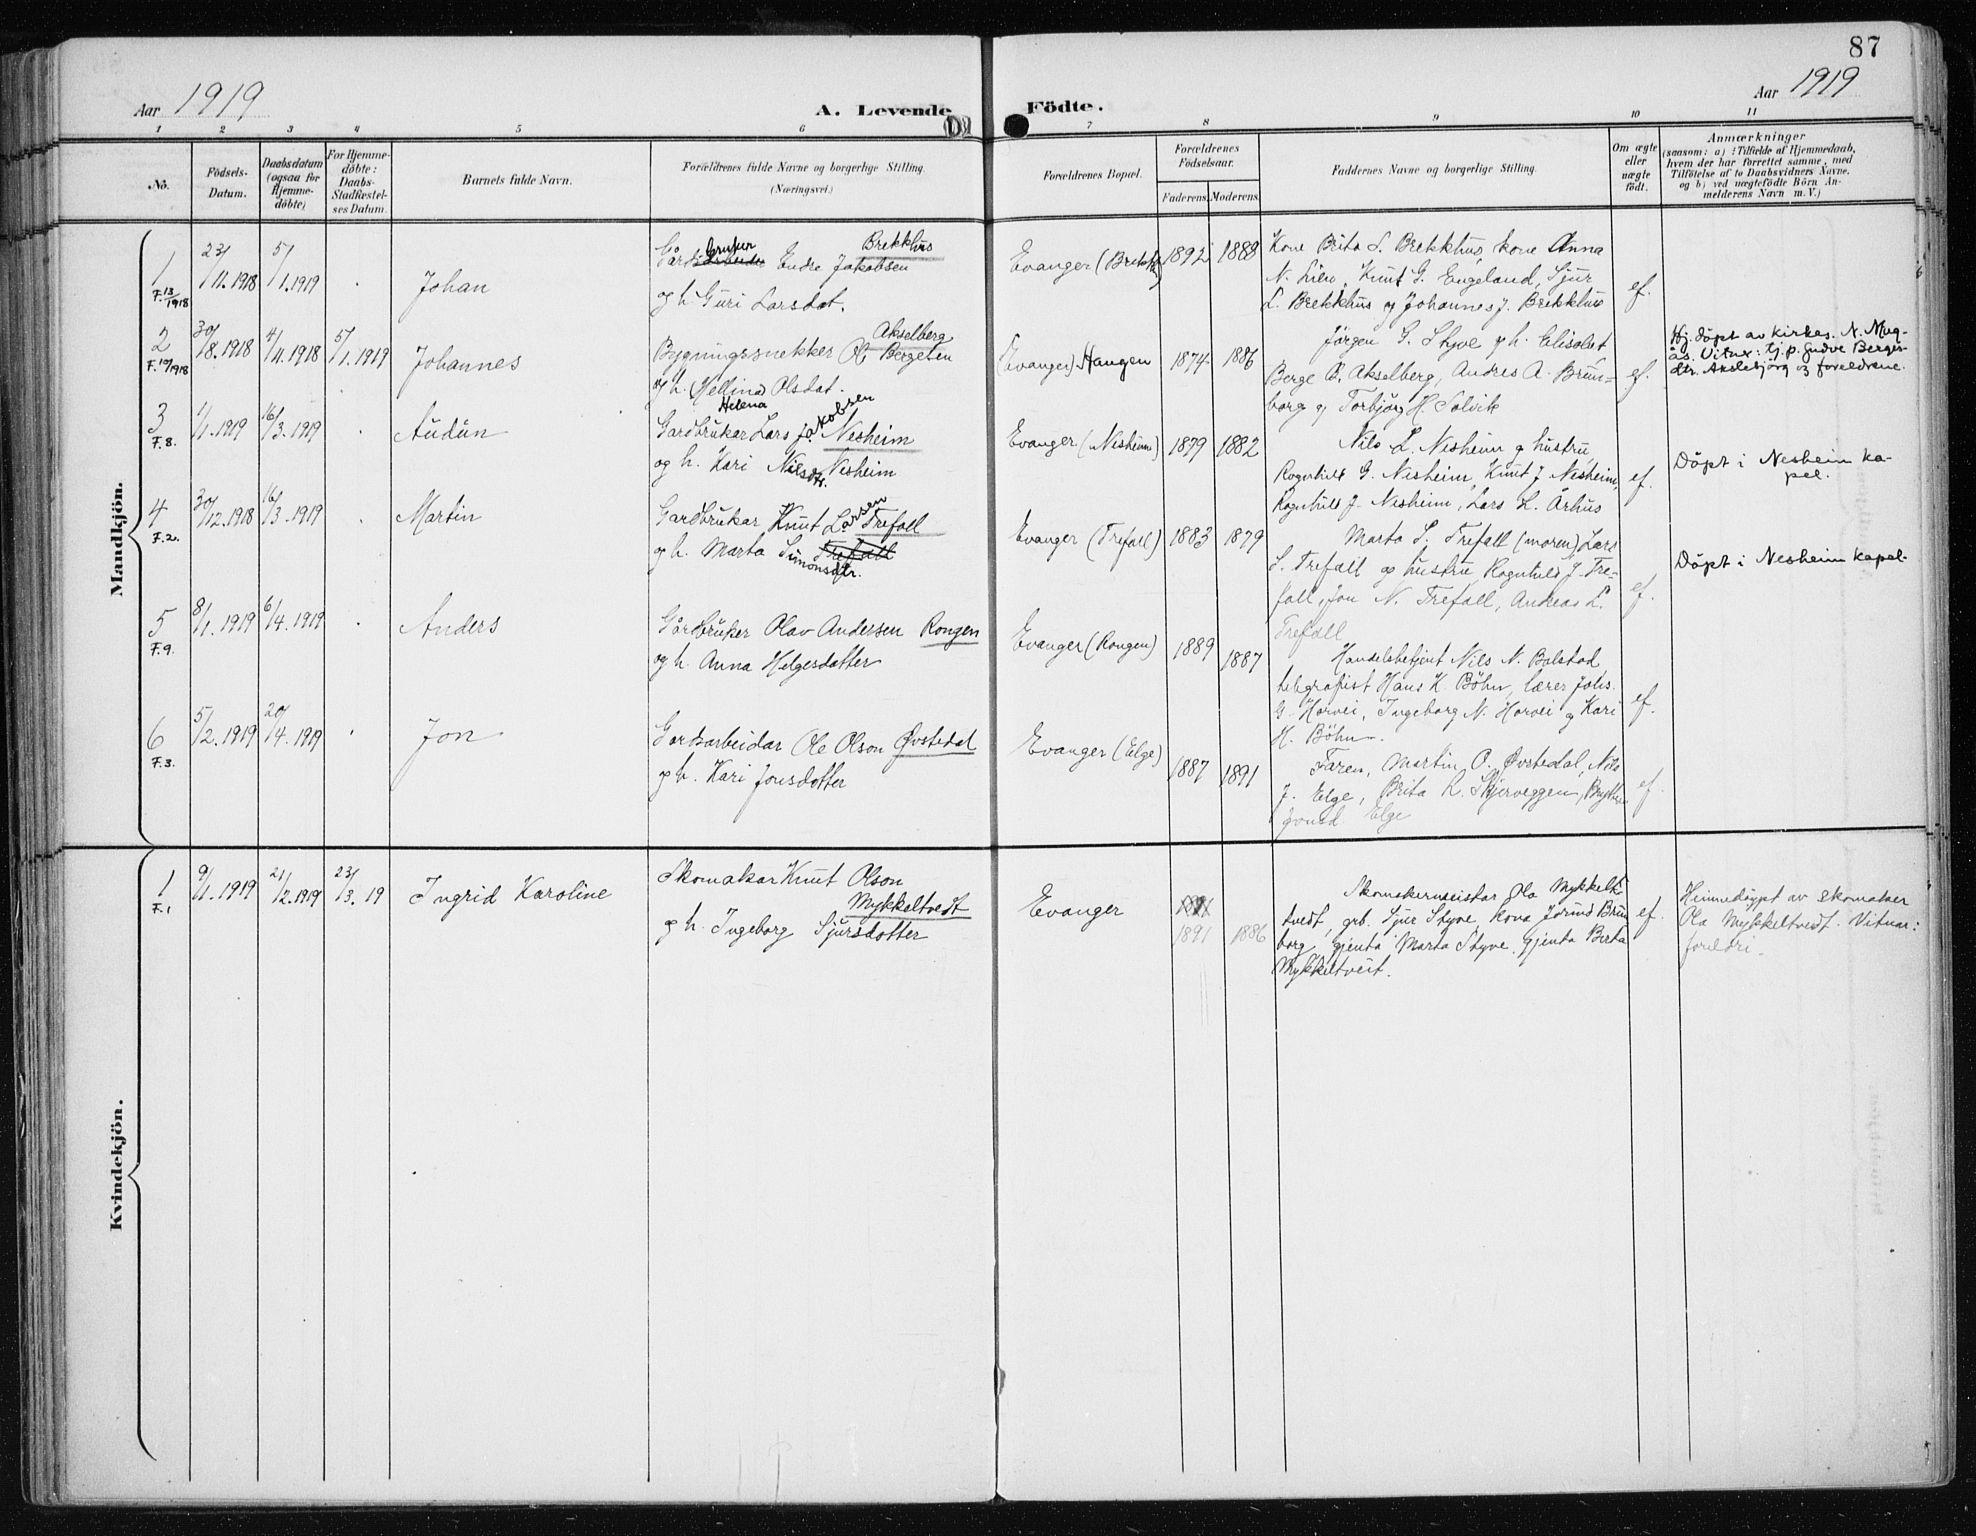 87
Aar 1919
A. Levende
Födte.
Aar 1919
1 2 3 4 5 6 7 8 9 10 11
No.
Födsels-Datum.
Daabsdatum (ogsaa for Hjemme-döbte)
For Hjemme-döbte: Daabs-Stadfæstel-ses Datum.
Barnets fulde Navn.
Forældrenes fulde Navne og borgerlige Stilling. (Næringsvei.)
Forældrenes Bopæl.
Forældrenes Födselsaar.
Faderens. Moderens.
Faddernes Navne og borgerlige Stilling.
Om ægte eller uægte födt.
Anmærkninger
(saasom: a) i Tilfælde af Hjemmedaab,
hvem der har forrettet samme, med
Tilföielse af to Daabsvidners Navne.
og b) ved uægtefödte Börn An-
melderens Navn m.V.)
Mandkjön.
1 F. 13/1918
23/11.1918
5/1.1919
Johan
Brekkhus
Gårdbruker Endre Jakobsen
og h. Guri Larsdat.
Evanger (Brekkh)
1892 1888
Kone Brita S. Brekkhus, kone Anna
N. Lien, Knut G. Engeland, Sjur
L. Brekkhus og Johannes J. Brekkhus
ef.
2 F. 10/1918
30/8.1918
4/11.1918
5/1.1919
Johannes
Akselberg
Bygningssnekker Ol Bergeten
og h. Hellina Olsdat.
Helena
Evanger) Haugen
1874 1886
Jörgen G. Styve og h. Elisabet
Berge B. Akselberg, Andres A. Brun-
borg og Torbjörg H. Solvik
ef.
Hj. döpt av kirkes. N. Mug-
ås. Vitnx: tj.p. Gudve Berges-
dtr. Akslebjörg og foreldrene.
3 F. 8.
1/1.1919
16/3.1919
Audun
Gardbrukar Lars Jakobsen Nesheim
og h. Kari Nilsdtr. Nesheim
Evanger (Nesheim)
1879 1882
Nils L. Nesheim og hustru
Ragnhild G. Nesheim, Knut J. Nesheim,
Ragnhild J. Nesheim, Lars L. Århus
ef.
Döpt i Nesheim ka-
pel.
4 F. 2.
30/12.1918
16/3.1919
Martin
Gardbrukar Knut Larsen Trefall
og h. Marta Simonsdtr. Trefall
Evanger (Trefall)
1883 1879
Marta S. Trefall (moren) Lars
L. Trefall og hustru Ragnhild J. Tre-
fall, Jon N. Trefall, Andreas L.
Trefall
ef.
Döpt i Nesheim kapel-
5 F. 9.
8/1.1919
6/4.1919
Anders
Gårdbruker Olav Andersen Rongen
og h. Anna Helgesdatter
Evanger (Rongen)
1889 1887
Handelsbetjent Nils N. Bolstad
telegrafist Hans K. Böhn, lærer Johs.
G. Horvei, Ingeborg N. Horvei og Kari
H. Böhn.
ef.
6 F. 3.
5/2.1919
20/4.1919
Jon
Gardsarbeidar Ole Olson Øvstedal
og h. Kari Jonsdotter
Evanger (Elge)
1887 1891
Faren, Martin O. Øvstedal, Nils
J. Elge, Brita L. Skjerveggen,
Jonsd. Elge
ef.
Kvindekjön.
1 F. 1
9/1.1919
21/2.1919
23/3.19
Ingrid Karoline
Skomakar Knut Olson
Mykkeltvedt
og h. Ingeborg Sjursdotter
Evanger
1891 1886
Skomakermeistar Ola Mykkel-
tvedt, grb. Sjur Styve Kona Jorund Brun
borg, gjenta Marta Styve. Gjenta Berta
Mykkeltveit.
ef.
Heimedöypt av skomaker
Ola Mykkeltvedt. Vitnar:
foreldri.